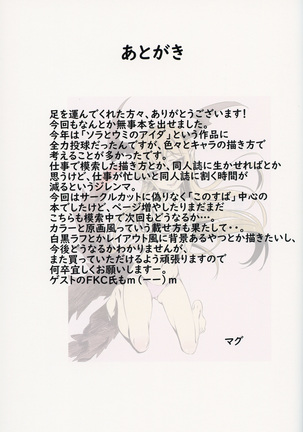 あとがき
足を運んでくれた方々、ありがとうございます!
今回もなんとか無事本を出せました。
今年は「ソラとウミのアイダ」という作品に
全力投球だったんですが、色々とキャラの描き方で
考えることが多かったです。
仕事で模索した描き方とか、同人誌に生かせればとか
思うけど、仕事が忙しいと同人誌に割く時間が
減るというジレンマ。
今回はサークルカットに偽りなく「このすば」中心の
本でしたけど、ページ増やしたりまだまだ
こちらも模索中で次回もどうなるか…。
カラーと原画風っていう載せ方も果たして・・。
白黒ラフとかレイアウト風に背景あるやつとか描きたいし、
今後どうなるかわかりませんが、
また買っていただけるよう頑張りますので
何卒宜しくお願いしますー。
ゲストのFKC氏もm(ーー)m
マグ